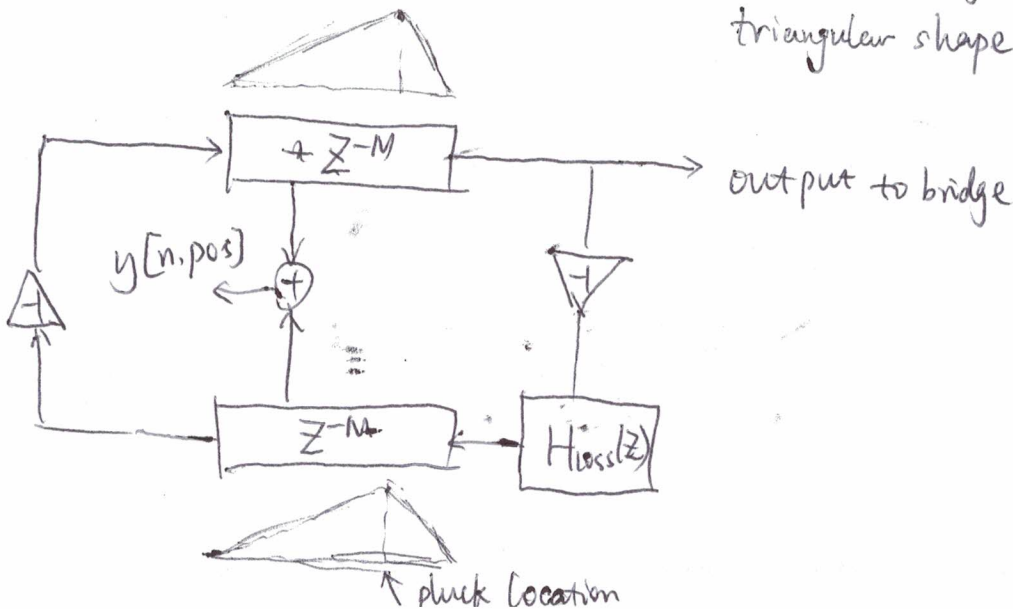 triangular shape
+ Z^-M
output to bridge
y[n.pos]
+
-1
-1
Z^-M
HLoss(Z)
pluck location